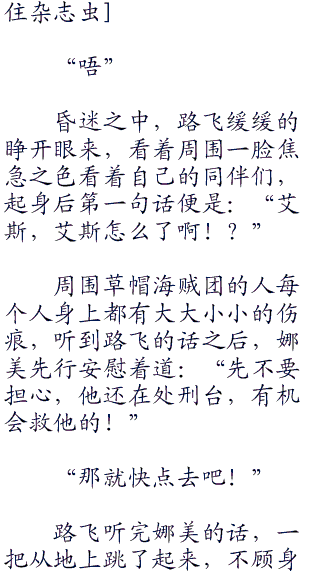 住杂志虫]
“唔”
昏迷之中，路飞缓缓的
睁开眼来，看着周围一脸焦
急之色看着自己的同伴们，
起身后第一句话便是：“艾
斯，艾斯怎么了啊！？”
周围草帽海贼团的人每
个人身上都有大大小小的伤
痕，听到路飞的话之后，娜
美先行安慰着道：“先不要
担心，他还在处刑台，有机
会救他的！”
“那就快点去吧！”
路飞听完娜美的话，一
把从地上跳了起来，不顾身